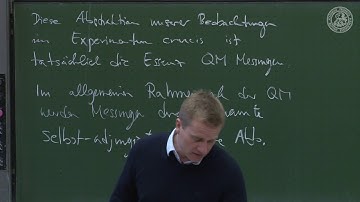 Diese Abstraktion unserer Beobachtungen
im Experimentum crucis ist
tatsächlich die Essenz QM Messungen.
Im allgemeinen Rahmen der QM
werden Messungen durch
Selbst-adjungierte Abb.